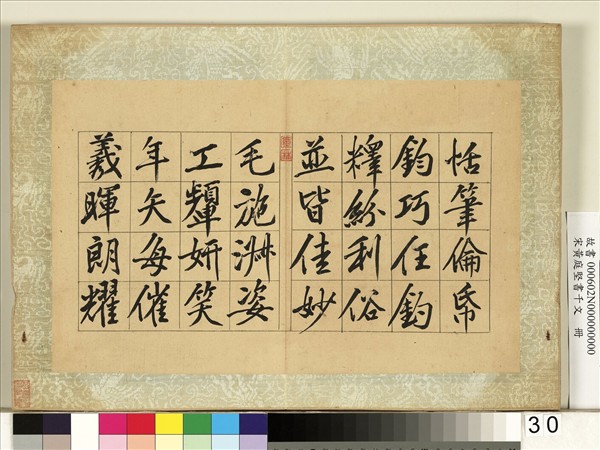 恬筆倫帋
鈞巧任釣
釋紛利俗
並皆佳妙
毛施淑姿
工顰妍笑
年矢每催
羲暉朗耀
故書 000602N000000000
宋黃庭堅書千文 冊
30